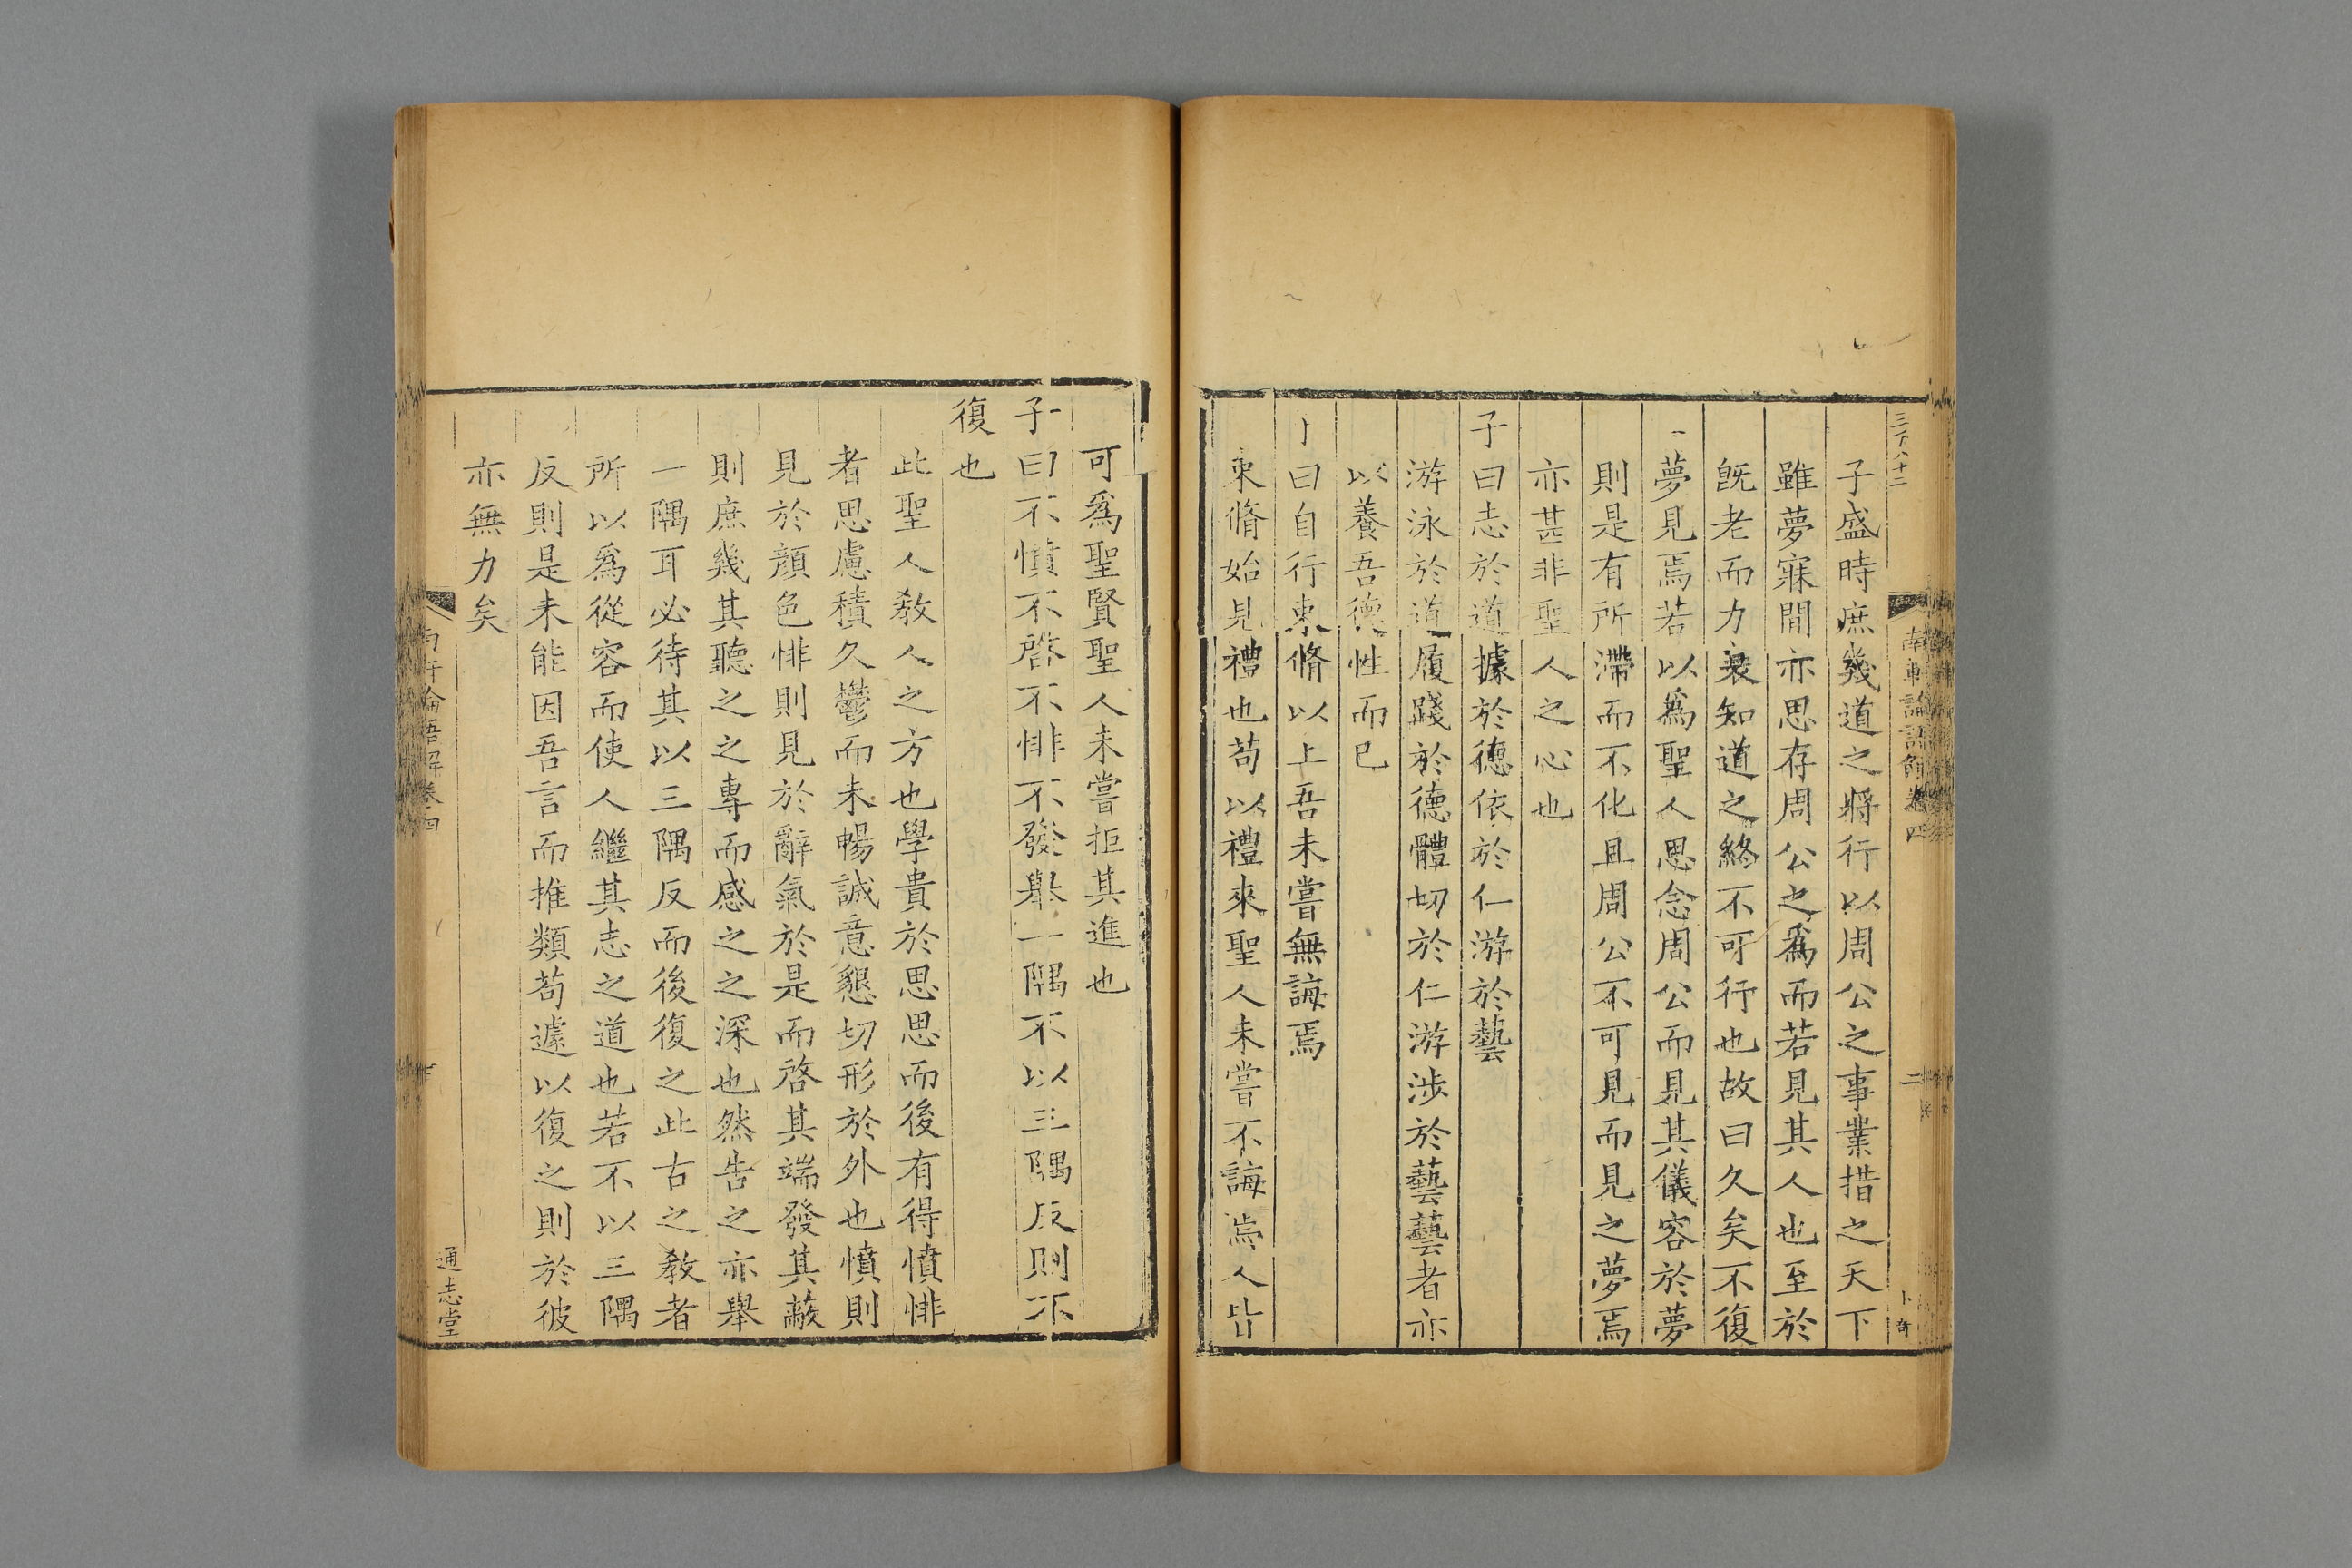 子盛時庶幾道之將行以周公之事業措之天下
雖夢寐間亦思存周公之爲而若見其人也至於
旣老而力衰知道之終不可行也故曰久矣不復
夢見焉若以爲聖人思念周公而見其儀容於夢
則是有所滯而不化且周公不可見而見之夢焉
亦甚非聖人之心也
子曰志於道據於德依於仁游於藝
游泳於道履踐於德體切於仁游涉於藝藝者亦
以養吾德性而已
曰自行束脩以上吾未嘗無誨焉
束脩始見禮也苟以禮來聖人未嘗不誨焉人皆
可爲聖賢聖人未嘗拒其進也
子曰不憤不啓不悱不發舉一隅不以三隅反則不
復也
此聖人敎人之方也學貴於思思而後有得憤悱
者思慮積久鬱而未暢誠意懇切形於外也憤則
見於顏色悱則見於辭氣於是而啓其端發其蔽
則庶幾其聽之之專而感之之深也然告之亦舉
一隅耳必待其以三隅反而後復之此古之敎者
所以爲從容而使人繼其志之道也若不以三隅
反則是未能因吾言而推類苟遽以復之則於彼
亦無力矣
南軒論語解卷四
通志堂